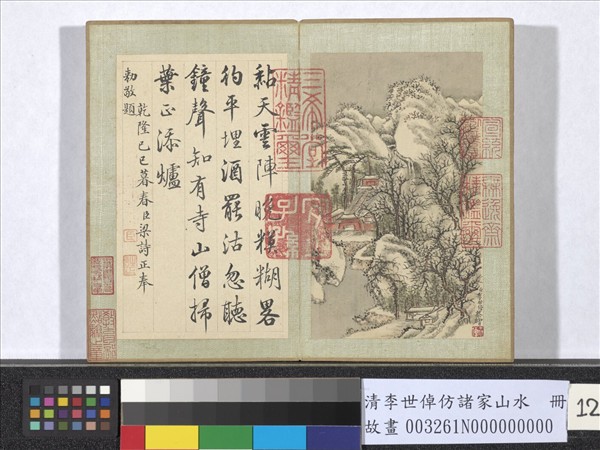 黏天雲陣晚糢糊畧
彴平埋酒罷沽忽聽
鐘聲知有寺山僧掃
葉正添爐
乾隆己巳暮春臣梁詩正奉
勅敬題
三希堂精鑑璽
宜子孫
清李世倬仿諸家山水 冊
故畫 003261N000000000
12